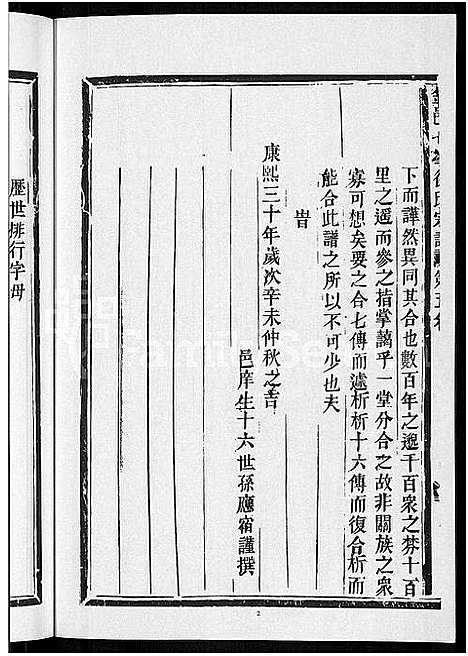 下而譁然異同其合也數百年之邈千百衆之棼十百
里之遥而參之指掌藹乎一堂分合之故非關族之衆
寡可想矣要之合七傳而遽析析十六傳而復合析而
能合此譜之所以不可少也夫
旹
康熙三十年歲次辛未仲秋之吉
邑庠生十六世孫應甯謹撰
歷世排行字母
2